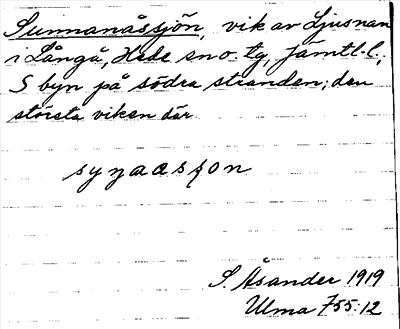 Sunnanåssjön, vik av Ljusnan
i Långå, Hede sn o. tg, Jämtl. l.;
S byn på södra stranden; den
största viken där.
S. Åsander 1919
Ulma 755:12